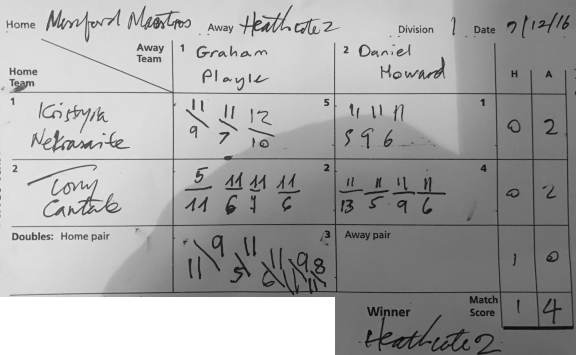 Home Mumford Maestros Away Heathcote 2 Division 1 Date 7/12/16
Away Team 1 Graham Playle 2 Daniel Howard
Home Team H A
1 Kristyna Nekrasaite 11/9 11/7 12/10 5 11 11 11 1 0 2
5 9 6
2 Tony Cantale 5/11 11/6 11/7 11/6 2 11/13 11/5 11/9 11/6 4 0 2
Doubles: Home pair 3 Away pair 1 0
9 11 11 9 8
11 5 6 11 11
Winner Match Score 1 4
Heathcote 2